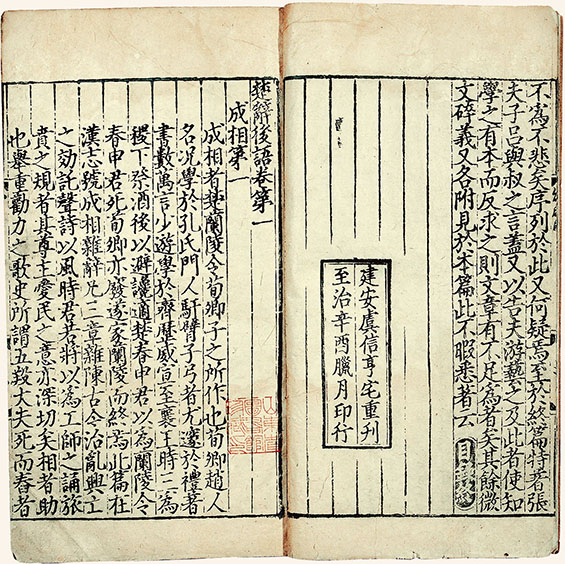 不爲不悲矣序列於此又何疑焉至於終篇特著張
夫子呂與叔之言蓋又以告夫游藝之及此者使知
學之有本而反求之則文章有不足爲者矣其餘微
文碎義又各附見於本篇此不暇悉著云
建安虞信亨宅重刊
至治辛酉臘月印行
楚辭後語卷第一
成相第一
成相者楚蘭陵令荀卿子之所作也荀卿趙人
名况學於孔氏門人馯臂子弓者尤邃於禮著
書數萬言少遊學於齊歷威宣至襄王時三爲
稷下祭酒後以避讒適楚春申君以爲蘭陵令
春申君死荀卿亦廢遂家蘭陵而終焉此篇在
漢志號成相雜辭凡三章雜陳古今治亂興亡
之効託聲詩以風時君若將以爲工師之誦旅
賁之規者其尊主愛民之意亦深切矣相者助
也舉重勸力之歌史所謂五羖大夫死而舂者